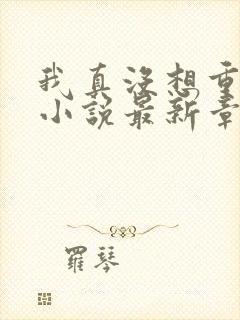 我真没想重
小说最新章
羅琴